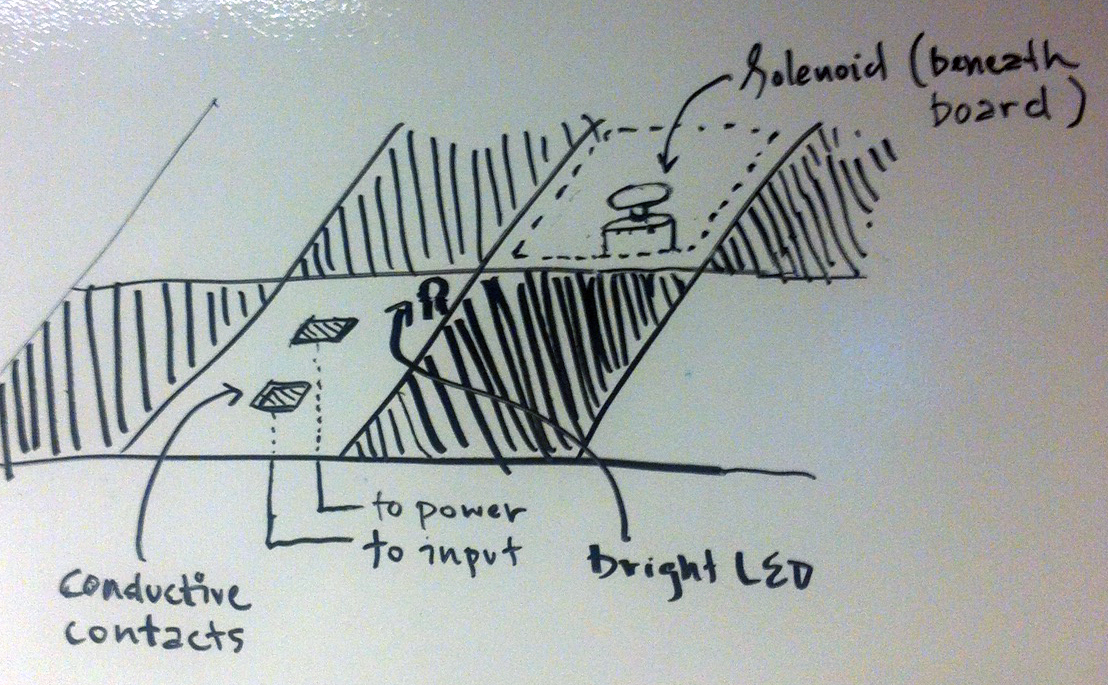 Solenoid (beneath
board)
to power
to input
Conductive
contacts
bright LED